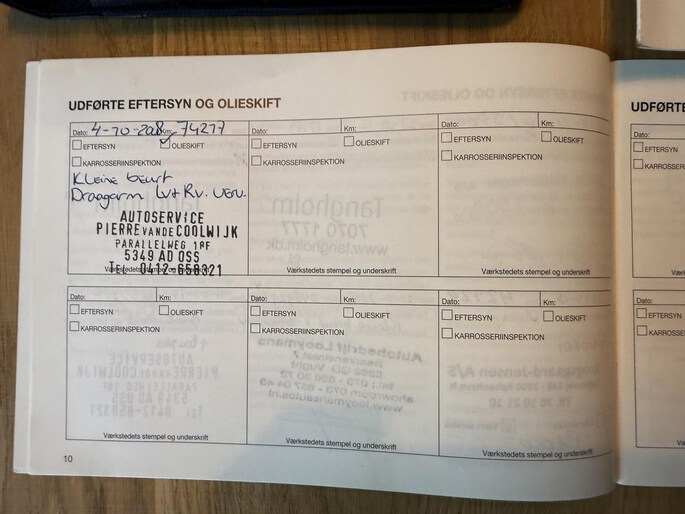 UDFØRTE EFTERSYN OG OLIESKIFT
Dato: 4-10-2018 Km: 74277
EFTERSYN OLIESKIFT
KARROSSERIINSPEKTION
Kleine beurt
Draagarm LV+RV. verv.
AUTOSERVICE
PIERRE VANDE COOLWIJK
PARALLELWEG 18F
5349 AD OSS
TEL. 0412-658321
Værkstedets stempel og underskrift
Dato: Km:
EFTERSYN OLIESKIFT
KARROSSERIINSPEKTION
Værkstedets stempel og underskrift
Dato: Km:
EFTERSYN OLIESKIFT
KARROSSERIINSPEKTION
Værkstedets stempel og underskrift
Dato: Km:
EFTERSYN OLIESKIFT
KARROSSERIINSPEKTION
Værkstedets stempel og underskrift
Dato: Km:
EFTERSYN OLIESKIFT
KARROSSERIINSPEKTION
Værkstedets stempel og underskrift
Dato: Km:
EFTERSYN OLIESKIFT
KARROSSERIINSPEKTION
Værkstedets stempel og underskrift
10
UDFØRTE
Dato:
EFTERSYN
KARROSSERI
Dato:
EFTERSYN
KARROSSE